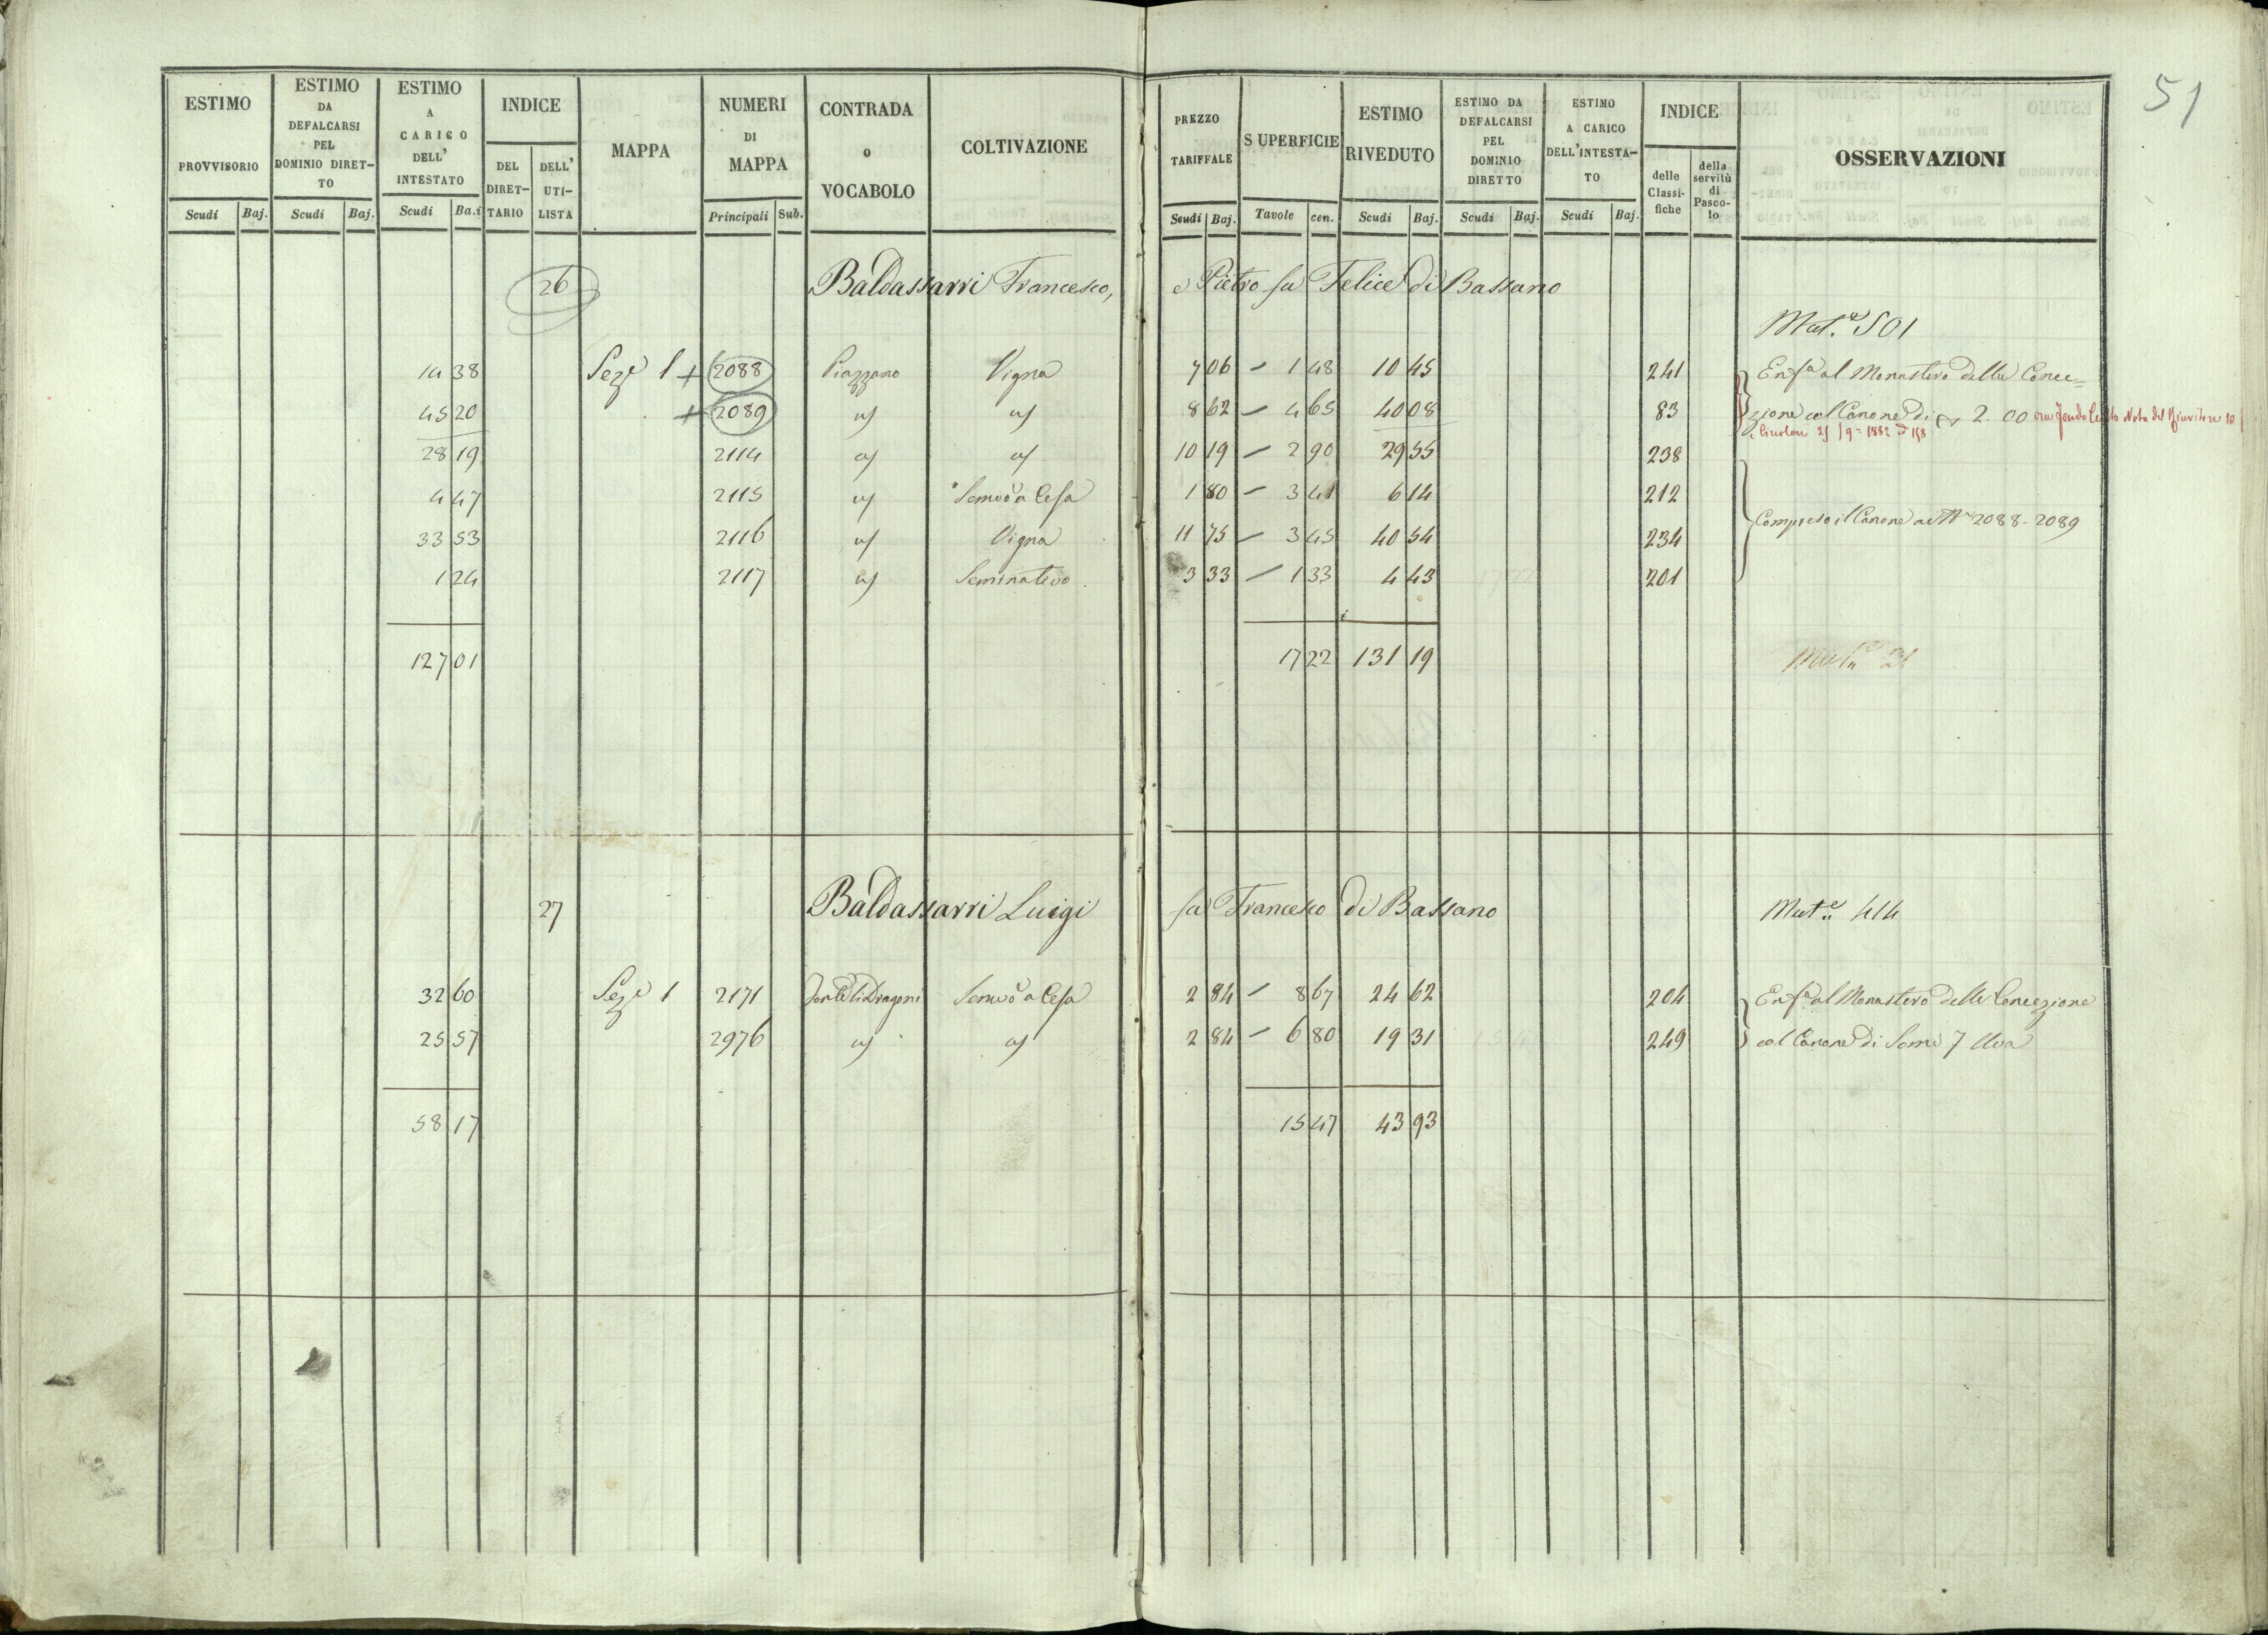 51
ESTIMO PROVVISORIO Scudi Baj.
ESTIMO DA DEFALCARSI PEL DOMINIO DIRETTO Scudi Baj.
ESTIMO A CARICO DELL' INTESTATO Scudi Ba.i
INDICE DEL DIRETTARIO DELL' UTILISTA
MAPPA
NUMERI DI MAPPA Principali Sub.
CONTRADA O VOCABOLO
COLTIVAZIONE
PREZZO TARIFFALE Scudi Baj.
SUPERFICIE Tavole cen.
ESTIMO RIVEDUTO Scudi Baj.
ESTIMO DA DEFALCARSI PEL DOMINIO DIRETTO Scudi Baj.
ESTIMO A CARICO DELL'INTESTATO Scudi Baj.
INDICE delle Classifiche della servitù di Pascolo
OSSERVAZIONI
26 Baldassarri Francesco, e Pietro fu Felice di Bassano
Mut.e 501
14 38 Sez.e 1 + 2088 Piazzano Vigna 7 06 – 1 48 10 45 241 Enf.a al Monastero della Conce=
45 20 + 2089 " " 8 62 – 4 65 40 08 83 zione col Canone di 2.00
28 19 2114 " " 10 19 – 2 90 29 55 238
4 47 2115 " Semvo a Cesa 1 80 – 3 41 6 14 212
Compreso il Canone ai N. 2088-2089
33 53 2116 " Vigna 11 75 – 3 45 40 54 234
1 24 2117 " Seminativo 3 33 – 1 33 4 43 201
127 01 17 22 131 19
27 Baldassarri Luigi fu Francesco di Bassano Mut.e 414
32 60 Sez.e 1 2171 Semvo a Cesa 2 84 – 8 67 24 62 204 Enf.a al Monastero della Concezione
25 57 2976 " " 2 84 – 6 80 19 31 249 col Canone di Some 7 Uva
58 17 15 47 43 93